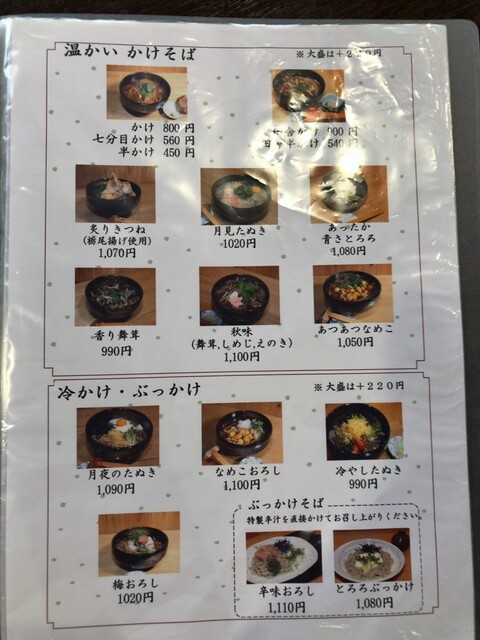 温かい かけそば
※大盛は+220円
かけ 800円
七分目かけ 560円
半かけ 450円
かけ 900円
半かけ 540円
炙りきつね
(栃尾揚げ使用)
1,070円
月見たぬき
1020円
あったか
青さとろろ
1,080円
香り舞茸
990円
秋味
(舞茸,しめじ,えのき)
1,100円
あつあつなめこ
1,050円
冷かけ・ぶっかけ
※大盛は+220円
月夜のたぬき
1,090円
なめこおろし
1,100円
冷やしたぬき
990円
梅おろし
1020円
ぶっかけそば
特製辛汁を直接かけてお召し上がりください。
辛味おろし
1,110円
とろろぶっかけ
1,080円